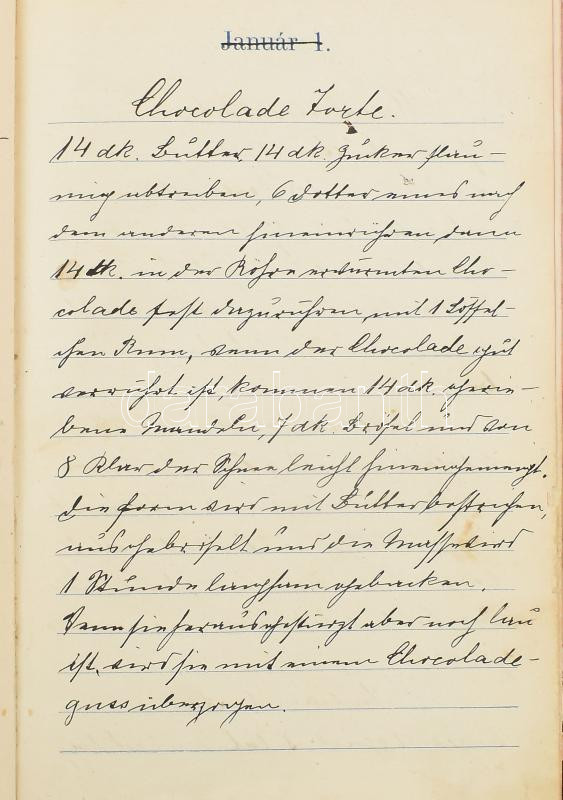 Január 1.
Chocolade Torte.
14 dk. Butter, 14 dk. Zucker flau-
mig abtreiben, 6 Dotter eines nach
dem anderen hineinrühren, dann
14 dk. in der Röhre erwärmten Cho-
colade fest dazurühren, mit 1 Löffel-
chen Rum, wenn der Chocolade gut
verrührt ist, kommen 14 dk. gerie-
bene Mandeln, 7 dk. Brösel und von
8 Klar der Schnee leicht hineingemengt.
Die Form wird mit Butter bestrichen,
ausgebröselt und die Masse wird
1 Stunde langsam gebacken.
Wenn sie herausgestürzt aber noch lau
ist, wird sie mit einem Chocolade-
guss überzogen.
darabanth